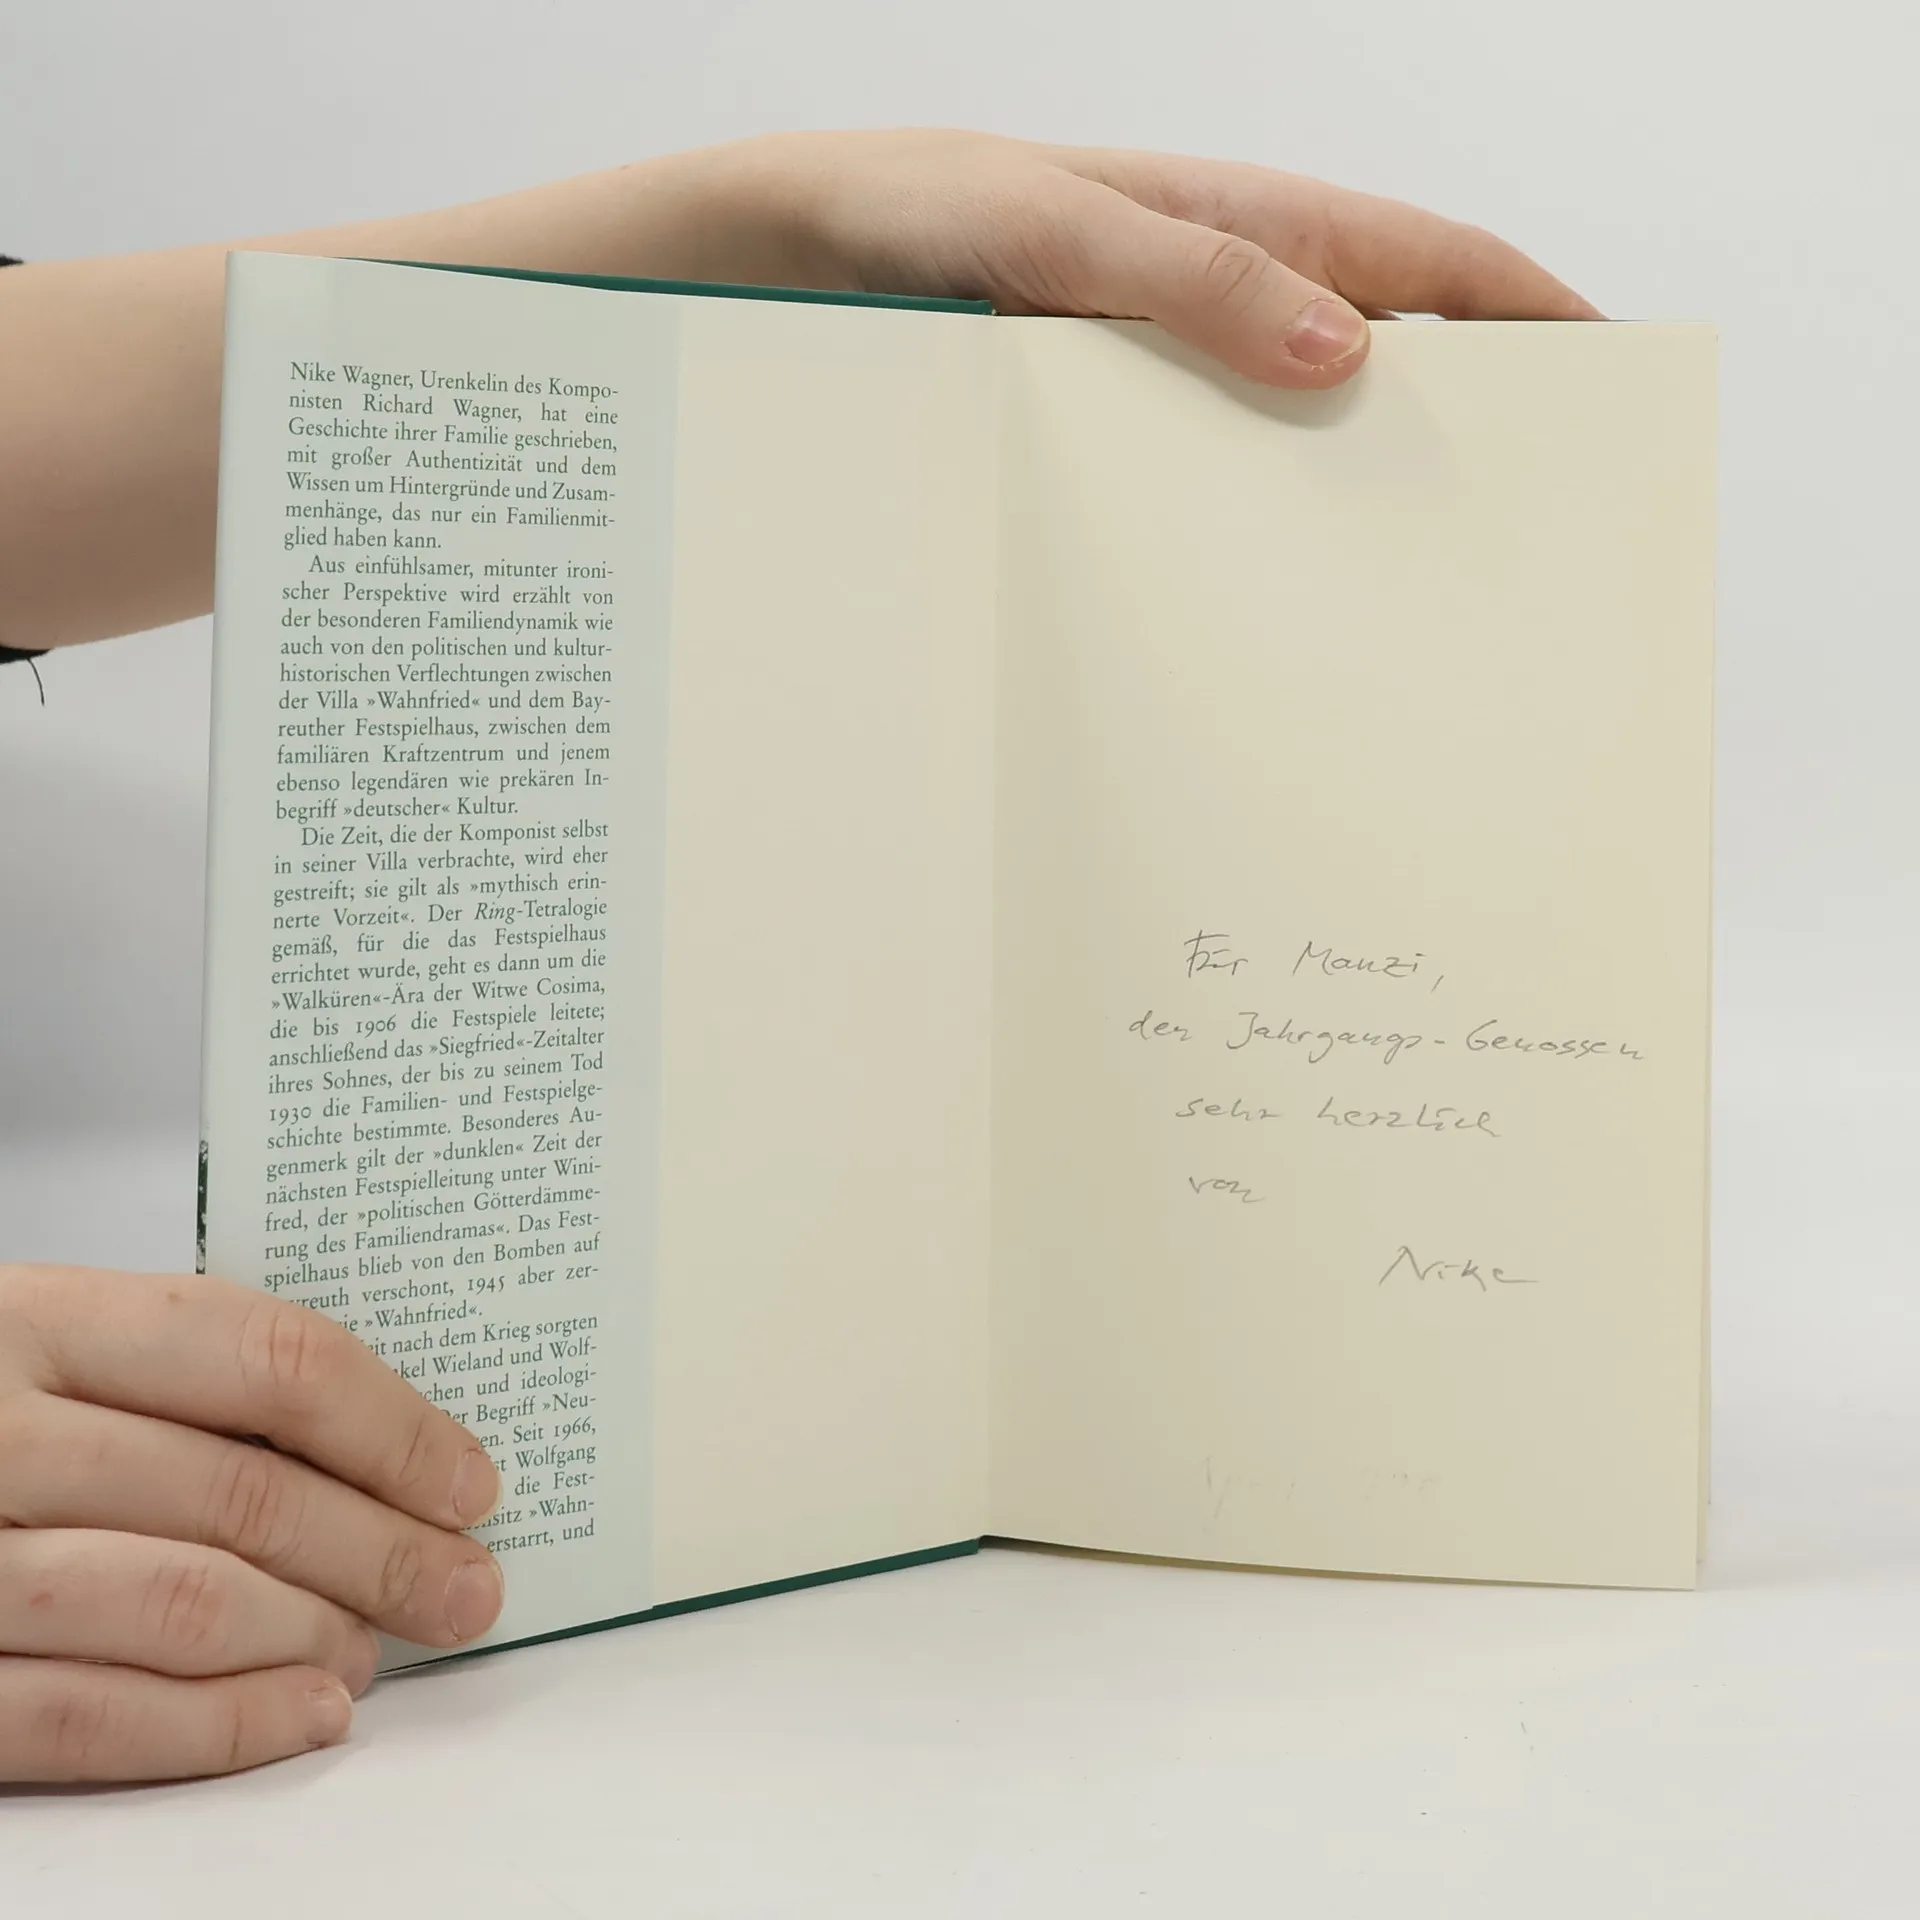 Nike Wagner, Urenkelin des Kompo-
nisten Richard Wagner, hat eine
Geschichte ihrer Familie geschrieben,
mit großer Authentizität und dem
Wissen um Hintergründe und Zusam-
menhänge, das nur ein Familienmit-
glied haben kann.
Aus einfühlsamer, mitunter ironi-
scher Perspektive wird erzählt von
der besonderen Familiendynamik wie
auch von den politischen und kultur-
historischen Verflechtungen zwischen
der Villa »Wahnfried« und dem Bay-
reuther Festspielhaus, zwischen dem
familiären Kraftzentrum und jenem
ebenso legendären wie prekären In-
begriff »deutscher« Kultur.
Die Zeit, die der Komponist selbst
in seiner Villa verbrachte, wird eher
gestreift; sie gilt als »mythisch erin-
nerte Vorzeit«. Der Ring-Tetralogie
gemäß, für die das Festspielhaus
errichtet wurde, geht es dann um die
»Walküren«-Ära der Witwe Cosima,
die bis 1906 die Festspiele leitete;
anschließend das »Siegfried«-Zeitalter
ihres Sohnes, der bis zu seinem Tod
1930 die Familien- und Festspielge-
schichte bestimmte. Besonderes Au-
genmerk gilt der »dunklen« Zeit der
nächsten Festspielleitung unter Wini-
fred, der »politischen Götterdämme-
rung des Familiendramas«. Das Fest-
spielhaus blieb von den Bomben auf
reuth verschont, 1945 aber zer-
ie »Wahnfried«.
eit nach dem Krieg sorgten
kel Wieland und Wolf-
chen und ideologi-
er Begriff »Neu-
en. Seit 1966,
st Wolfgang
die Fest-
sitz »Wahn-
erstarrt, und
Für Manzi,
den Jahrgangs-Genossen
sehr herzlich
von
Nike